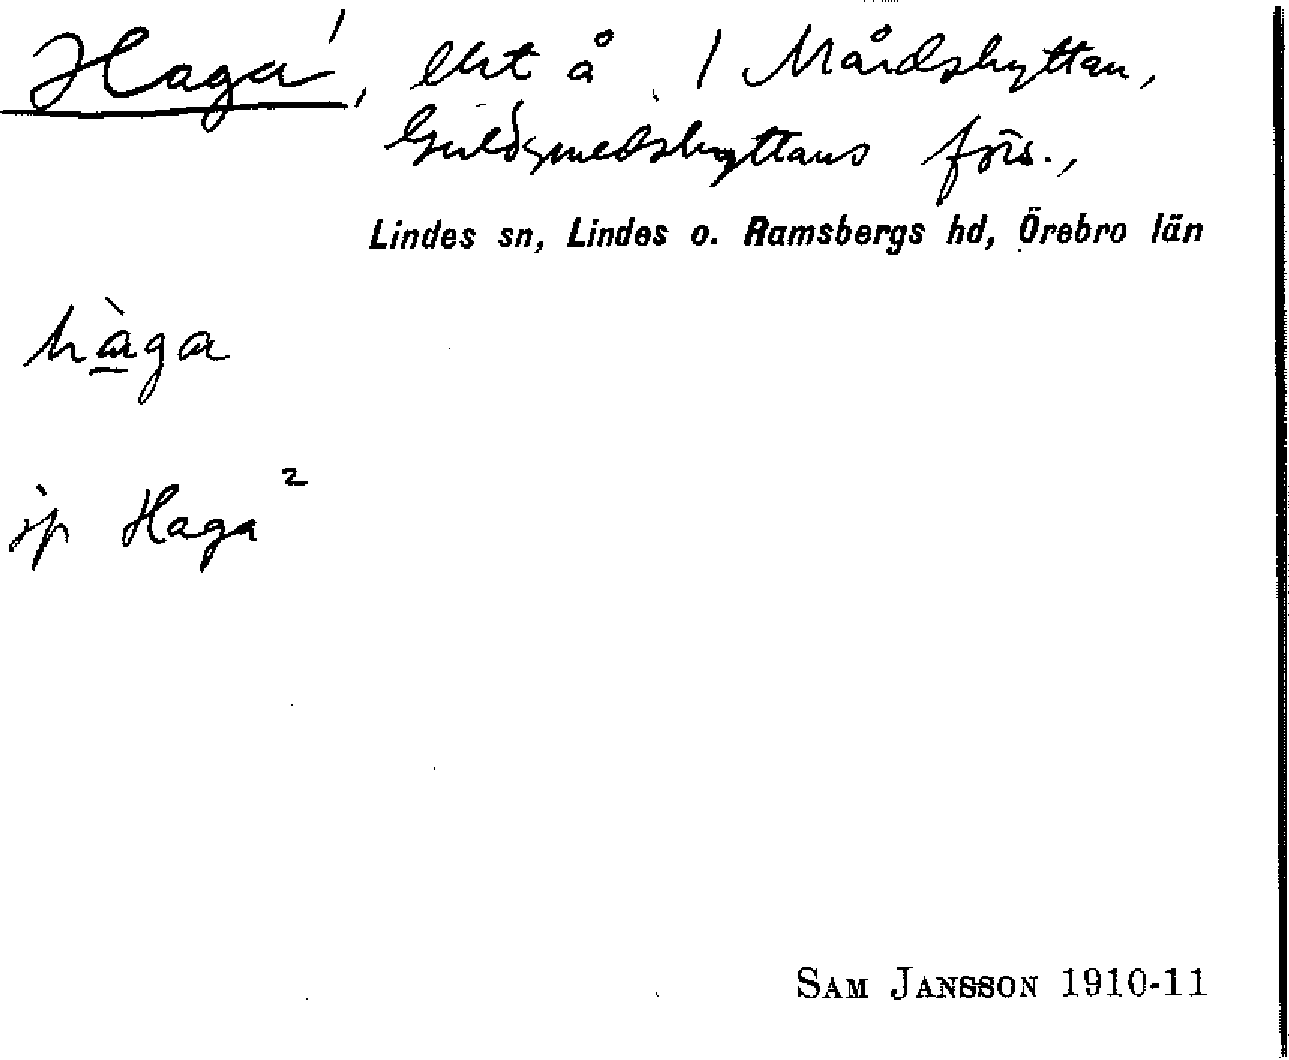 Haga¹, lht å 1 Mårdshyttan,
Guldsmedshyttans förs.,
Lindes sn, Lindes o. Ramsbergs hd, Örebro län
hàga
jp Haga²
SAM JANSSON 1910-11